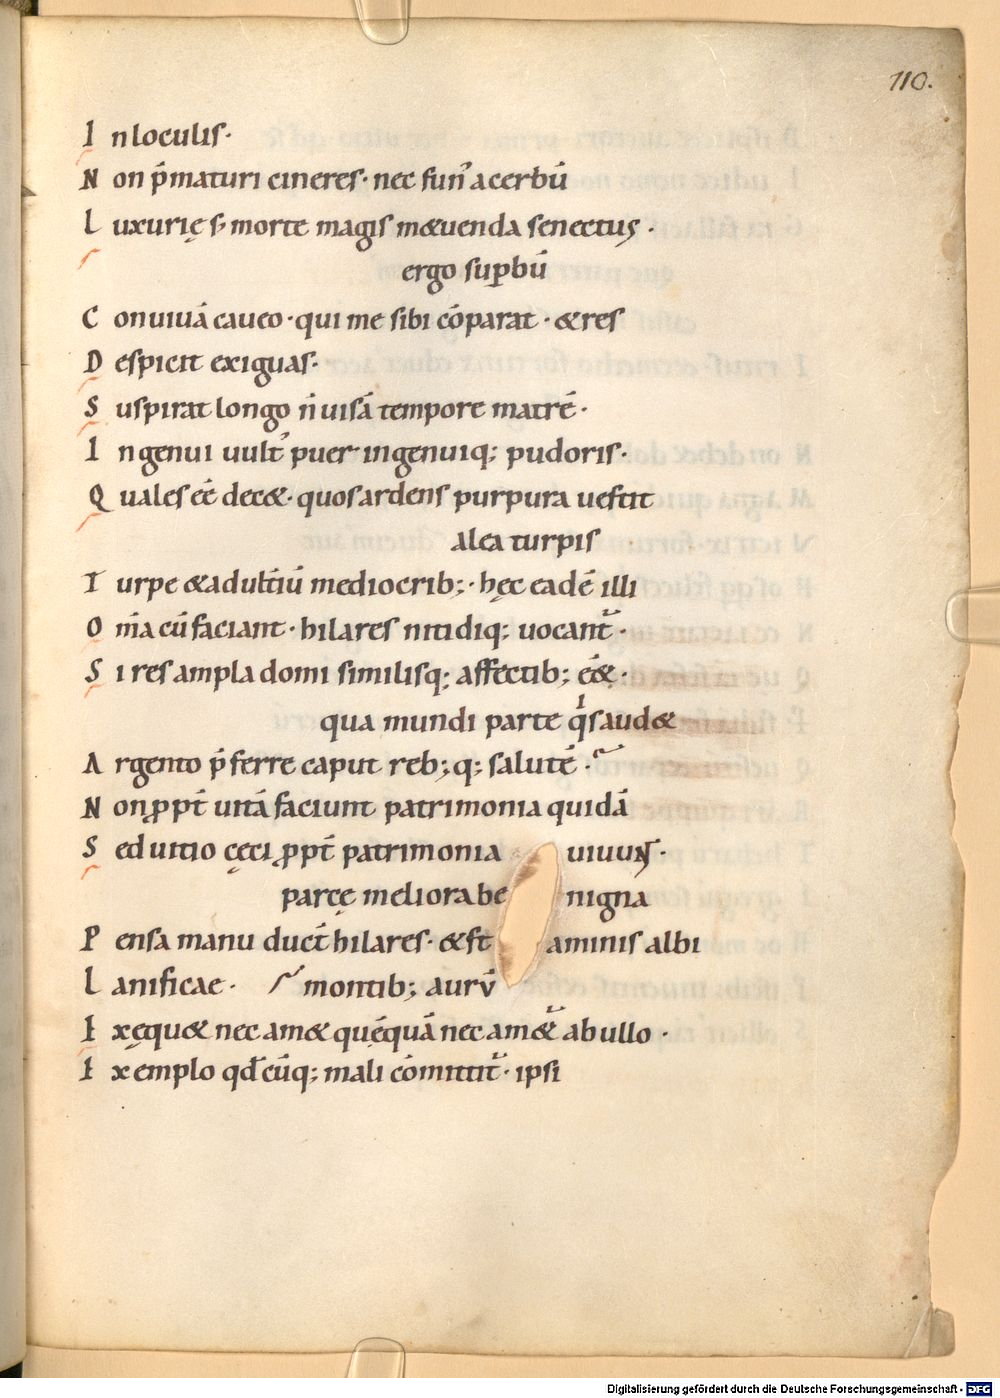 110.
I n loculis·
N on p̄maturi cineres· nec fun᾽ acerbū
L uxurię s; morte magis m&uenda senectus ·
ergo sup̱bū
C onuiuā caueo · qui me sibi cōparat · & res
D espicit exiguas·
S uspirat longo n̄ uisā tempore matrē·
I ngenui uult᾽ puer· ingenuiq; pudoris·
Q uales eē dec&· quos ardens purpura uestit
alea turpis
T urpe & adult̄iū mediocrib; · hęc eadē illi
O m̄a cū faciant · hilares nitidiq; uocant᷑ ·
S i res ampla domi similisq; affectib; ēē& ·
qua mundi parte qͥs aud&
A rgento p̄ferre caput reb;q; salutē ·
N on ꝓpt̄ uitā faciunt patrimonia quidā
S ed uitio cęci ꝓpt̄ patrimonia uiuuɴᴛ·
parcę meliora benigna
P ensa manu duct̄ hilares· & staminis albi
L anificae · montib; aurū
E xęqu& nec am& quēquā nec am&᷑ ab ullo ·
E xemplo qd̄cūq; mali cōmittit᷑ · ipsi
Digitalisierung gefördert durch die Deutsche Forschungsgemeinschaft - DFG